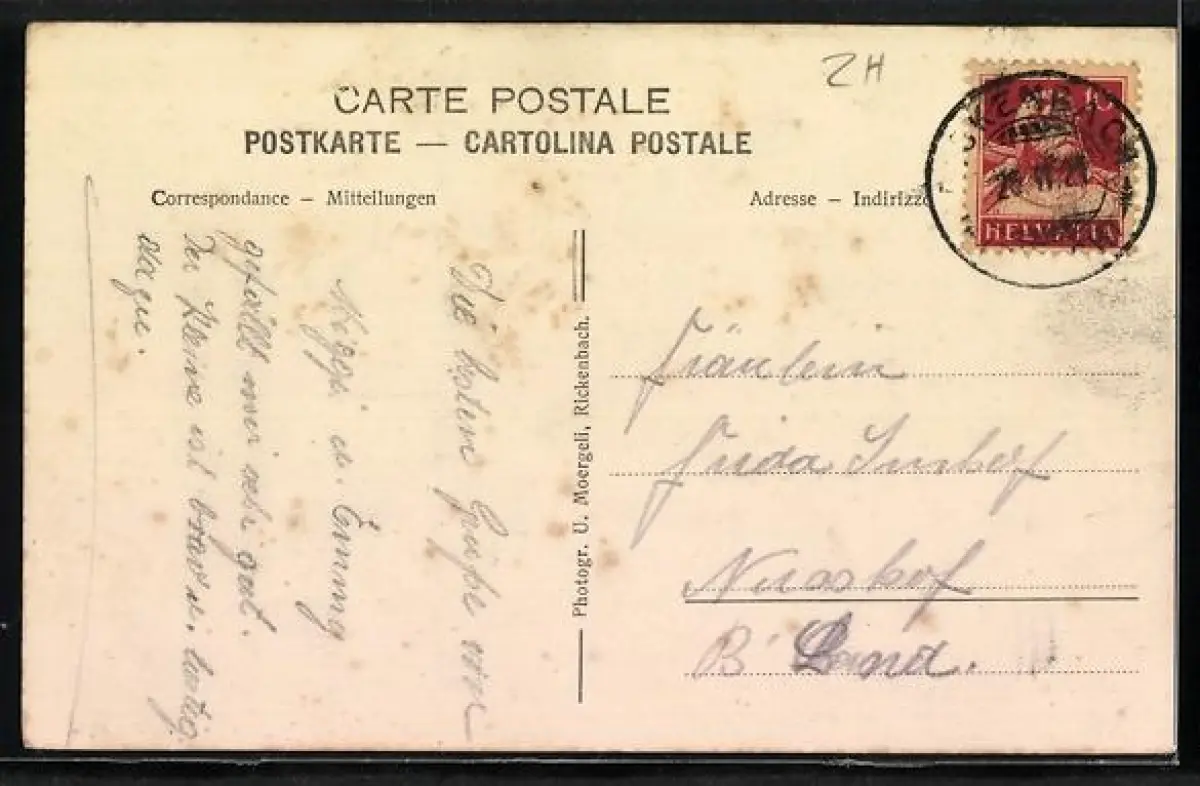 ZH
CARTE POSTALE
POSTKARTE — CARTOLINA POSTALE
Correspondance – Mitteilungen
Adresse – Indirizzo
HELVETIA
Die besten Grüsse von
u. Emmy
gefällt mir sehr gut.
Der Kleine ist brav u. lustig
Photogr. U. Moergeli, Rickenbach.
Fräulein
Frida Imhof
Nusshof
B' Land.